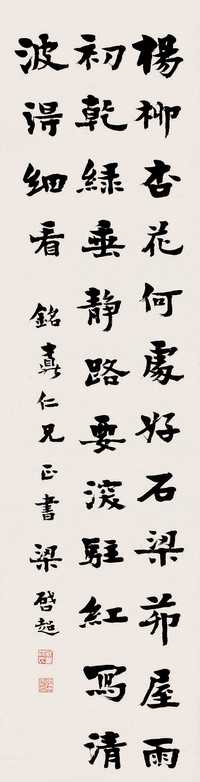 楊柳杏花何處好石梁茆屋雨
初乾綠垂靜路要深駐紅寫清
波得細看 銘仁兄正書 梁啓超